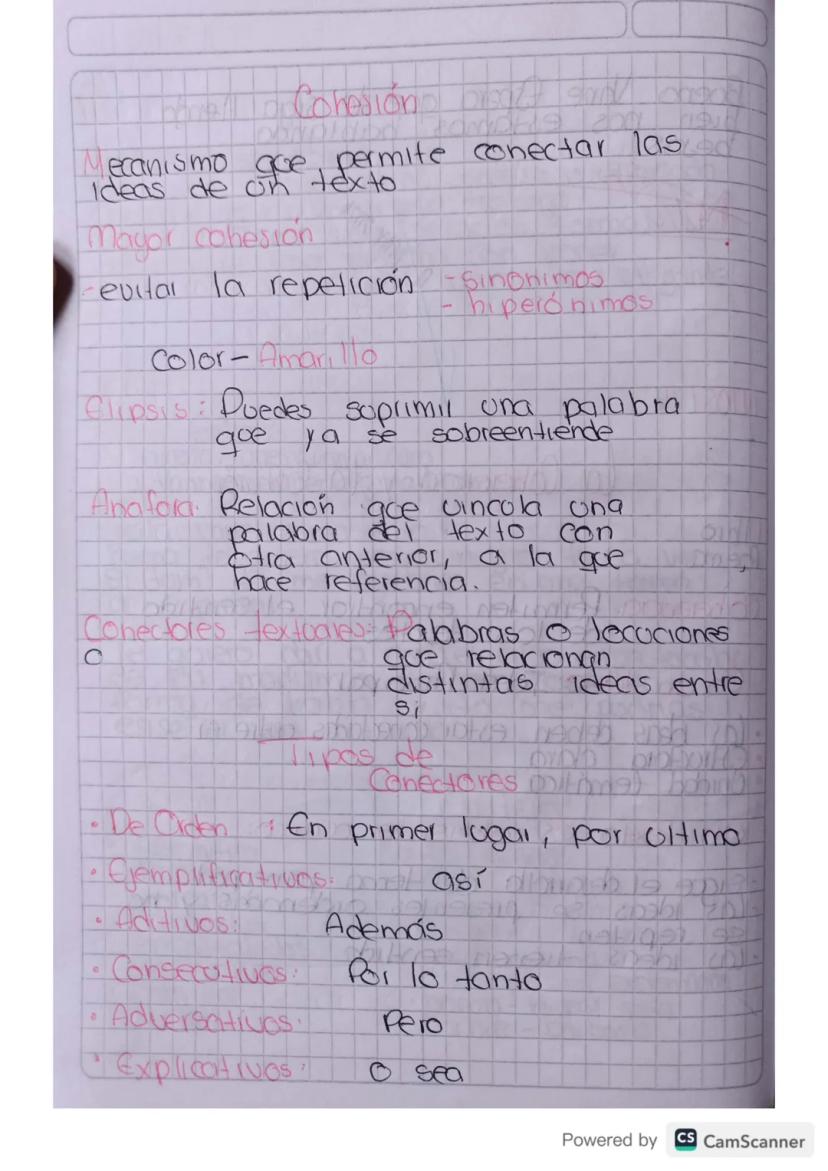 Cohesión
Mecanismo que permite conectar las
ideas de un texto
Mayor cohesión
-evitar la repetición -sinonimos
- hiperónimos
Color- Amarillo
Elipsis: Puedes suprimir una palabra
que ya se sobreentiende
Anafora. Relación que vincula una
palabra del texto con
otra anterior, a la que
hace referencia.
Conectores textuales: Palabras o locuciones
o que relacionan
distintas ideas entre
si
Tipos de
Conectores
• De Orden : En primer lugar, por ultimo
• Ejemplificativos: así
• Aditivos: Además
• Consecutivos: Por lo tanto
• Adversativos: Pero
• Explicativos: O sea
Powered by CS CamScanner